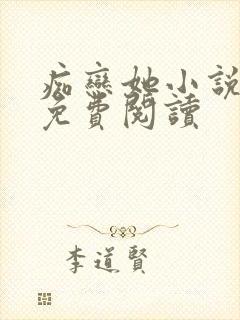 痴戀她小說
免費閱讀
李道賢